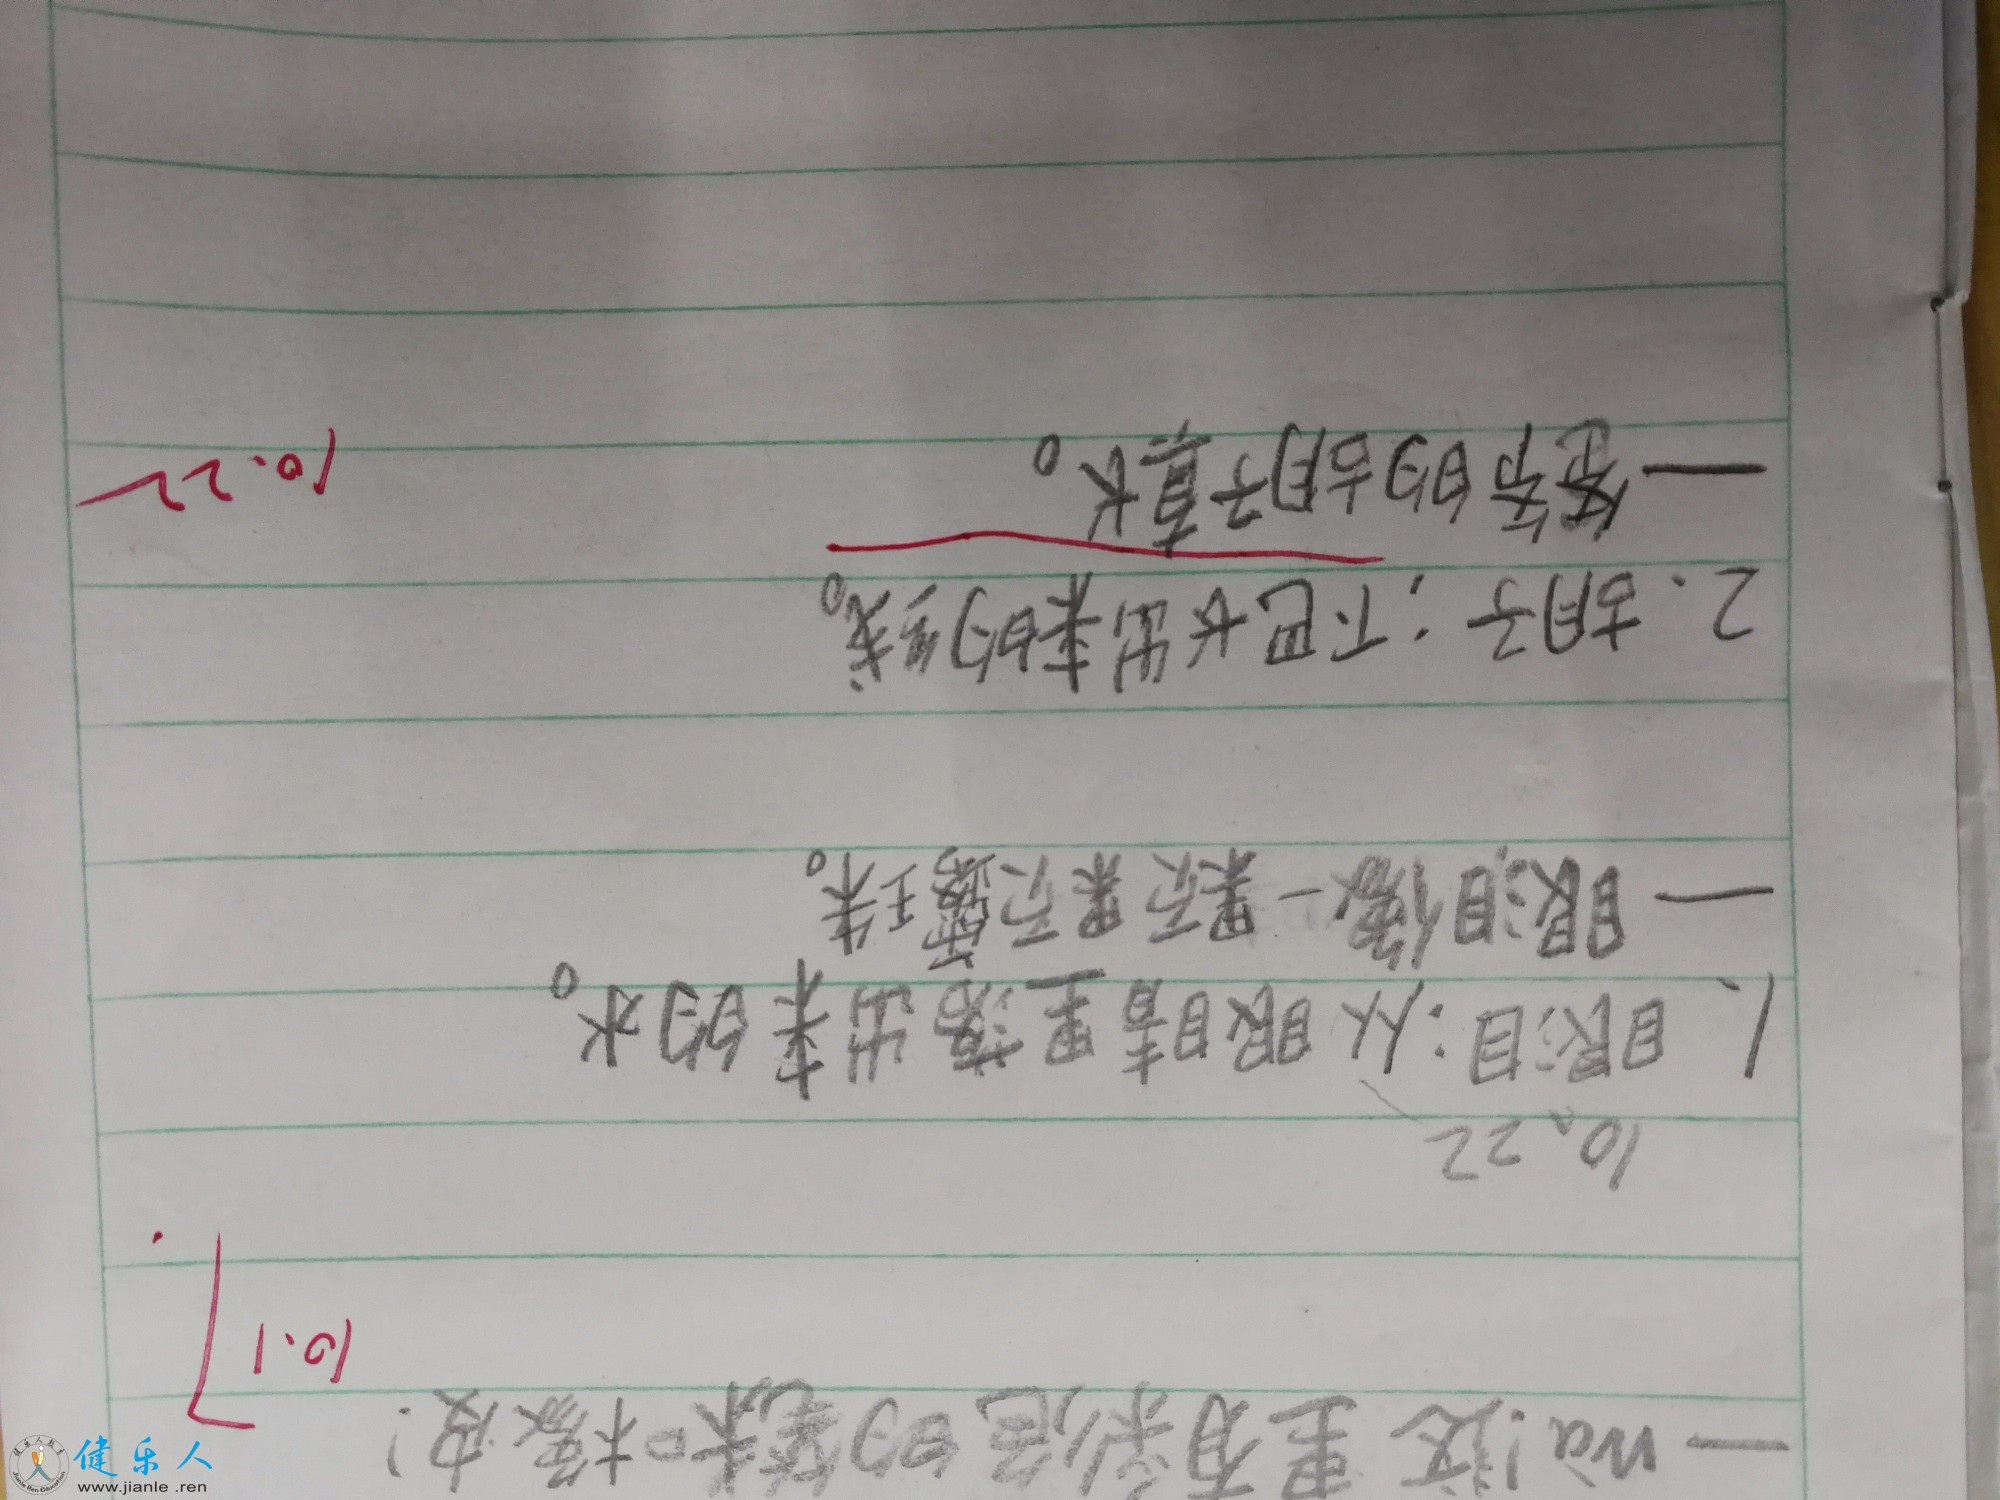 —wa!这里有彩色的笔和橡皮!
10.1
10、22
1.眼泪:从眼睛里落出来的水。
—眼泪像一颗颗露珠。
2.胡子:下巴长出来的线。
—爷的胡子真长。
10.22
健乐人
www.jianle.ren